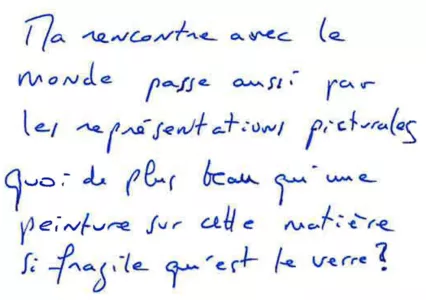 Ma rencontre avec le
monde passe aussi par
les représentations picturales
quoi de plus beau qu'une
peinture sur cette matière
si fragile qu'est le verre?